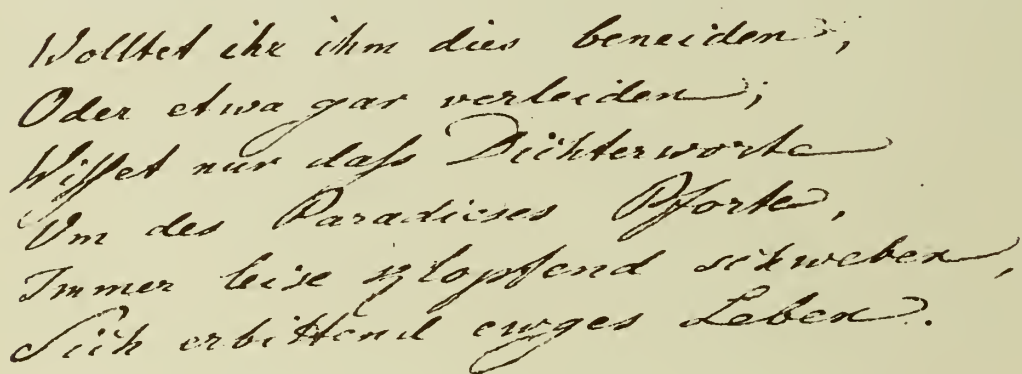 Wolltet ihr ihm dies beneiden,
Oder etwa gar verleiden;
Wisset nur daß Dichterworte
Um des Paradieses Pforte,
Immer leise klopfend schweben,
Sich erbittend ewges Leben.